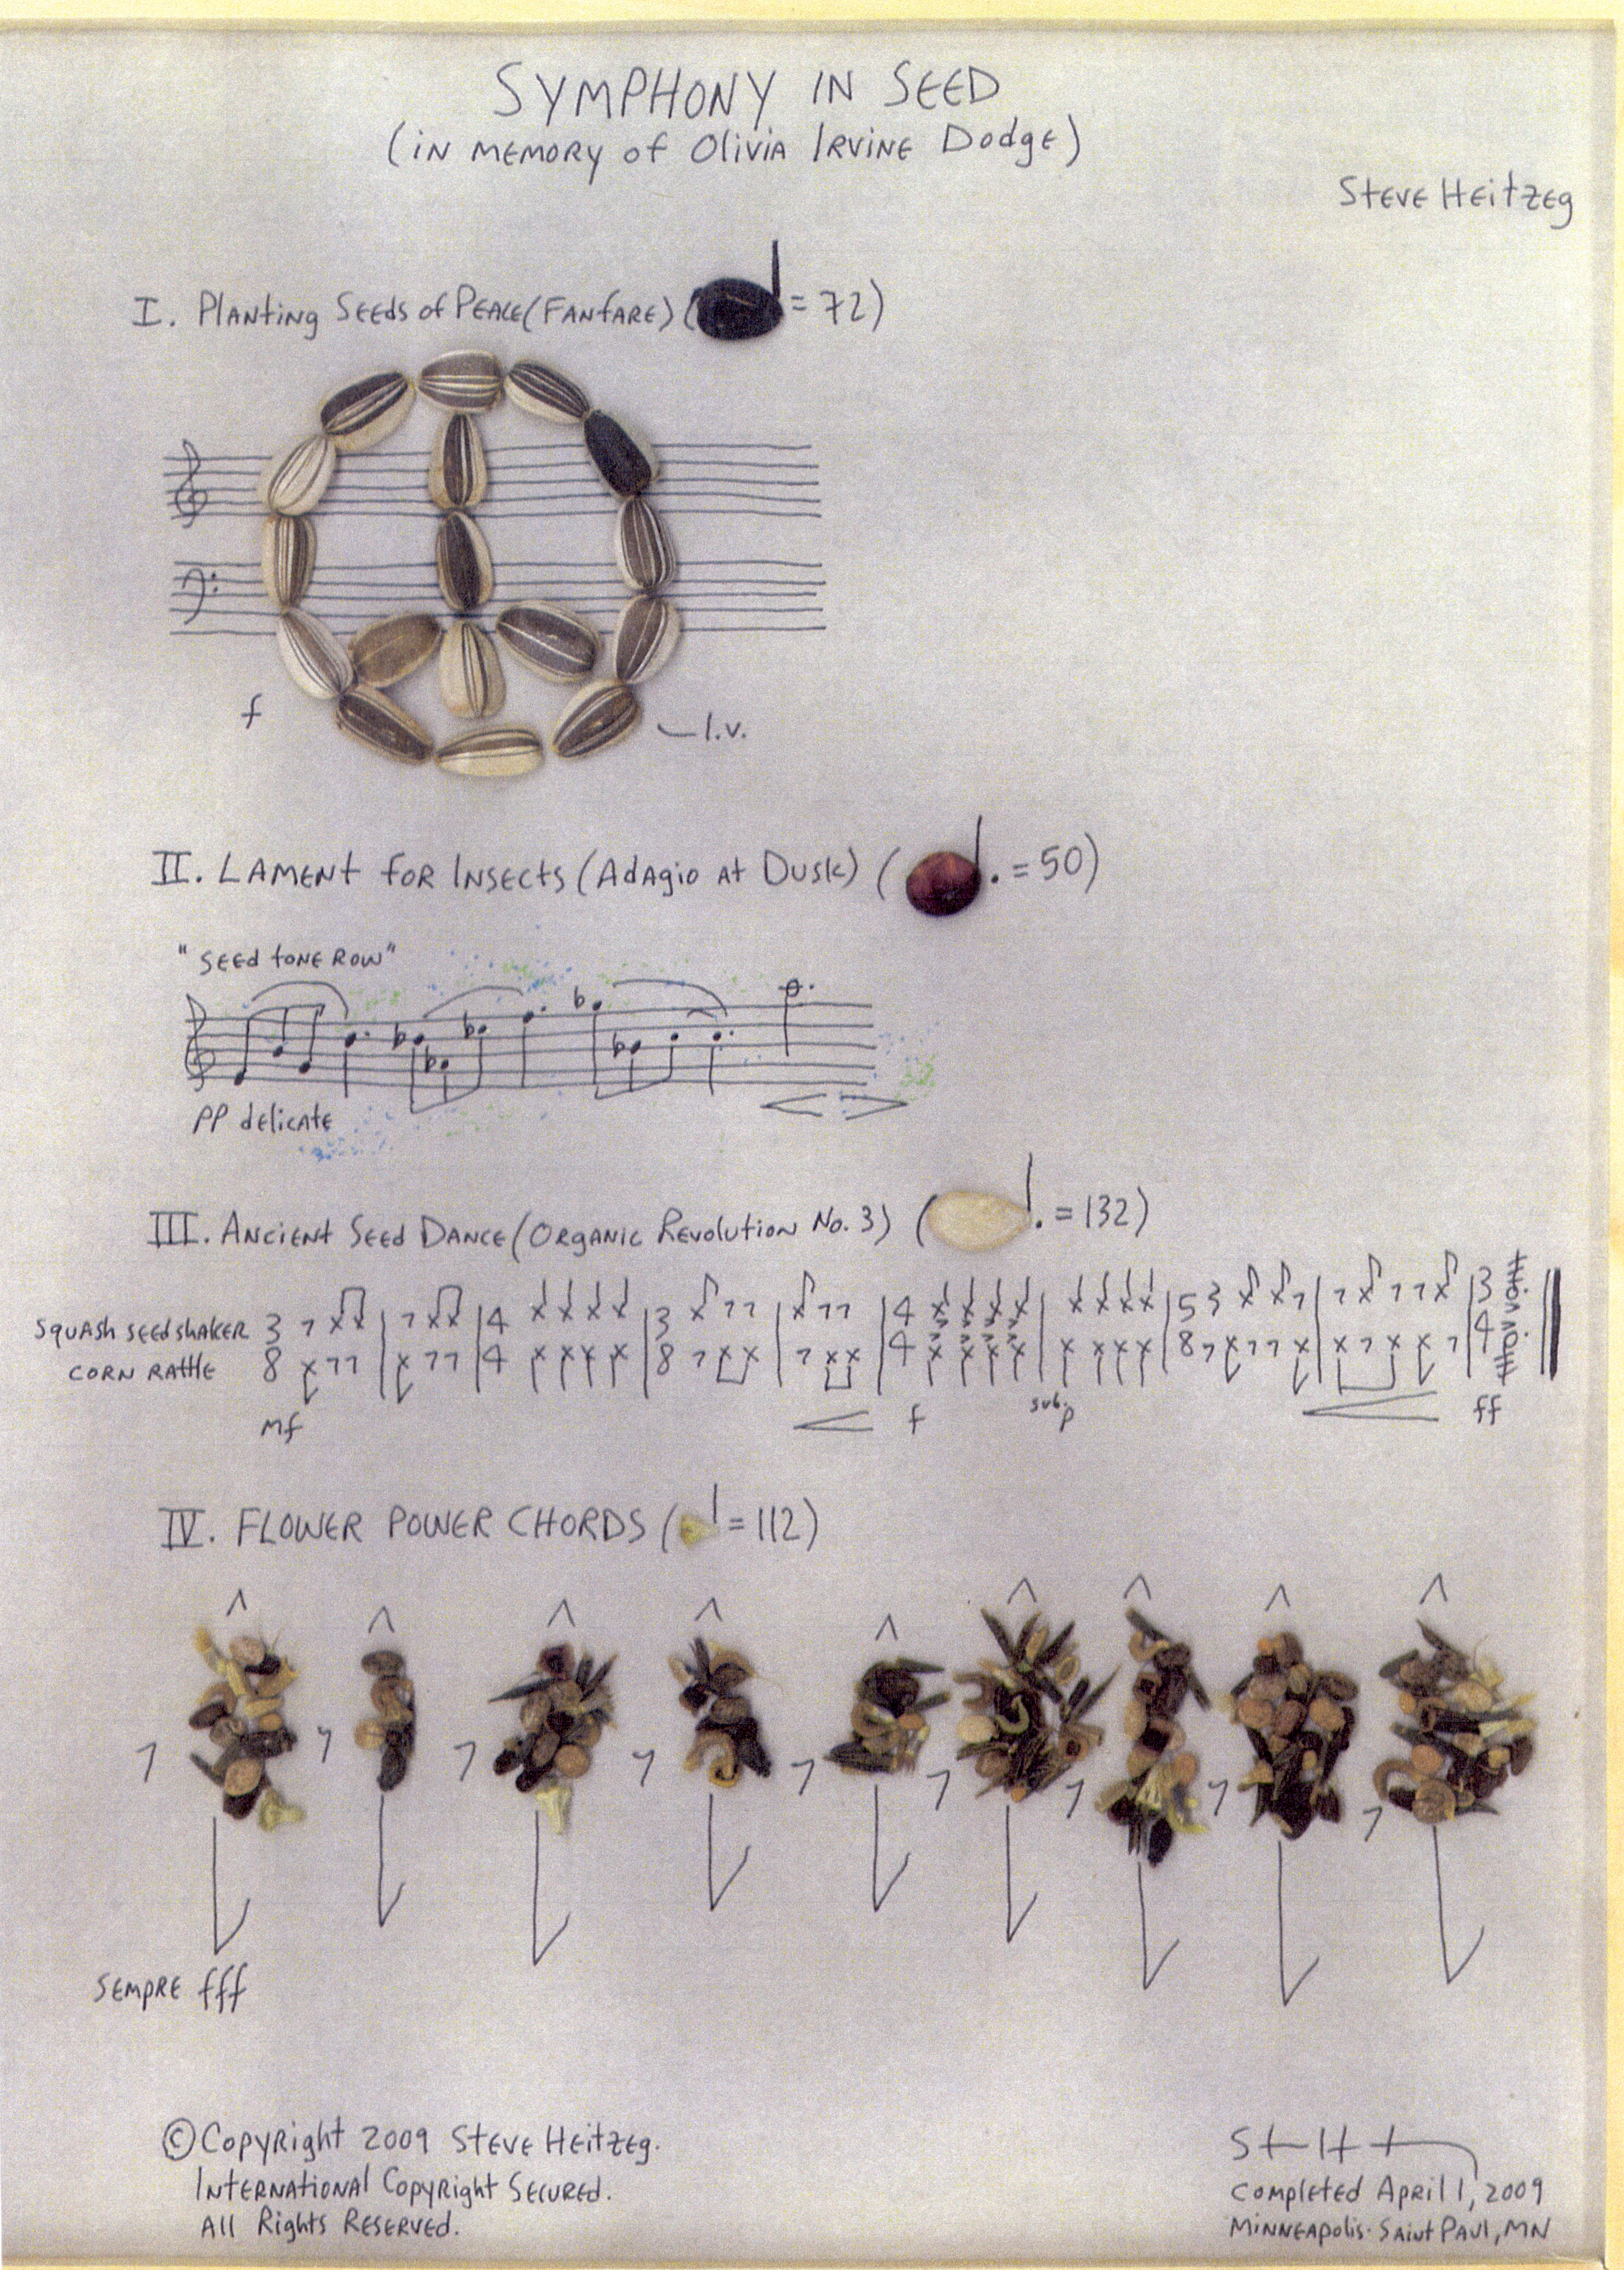 SYMPHONY IN SEED
(IN MEMORY of Olivia Irvine Dodge)
Steve Heitzeg
I. Planting Seeds of Peace (Fanfare) ( = 72)
f
l.v.
II. Lament for Insects (Adagio at Dusk) ( . = 50)
"seed tone row"
pp delicate
III. Ancient Seed Dance (Organic Revolution No. 3) ( . = 132)
squash seed shaker 3 4 3 4 5 3 3
corn rattle 8 4 8 4 8 4
mf f sub. p ff
IV. FLOWER POWER CHORDS ( = 112)
sempre fff
© Copyright 2009 Steve Heitzeg.
International Copyright Secured.
All Rights Reserved.
completed April 1, 2009
Minneapolis-Saint Paul, MN